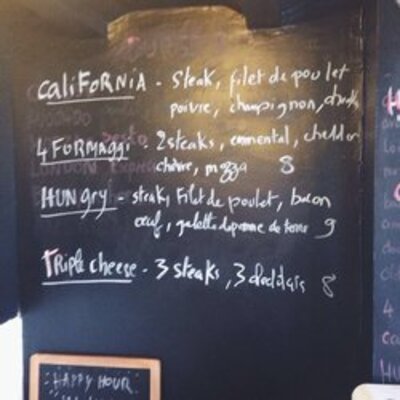 CALIFORNIA - Steak, filet de poulet
poivre, champignon, chedd
4 FORMAGGI - 2 steaks, emmental, cheddar
chèvre, mozza 8
HUNGRY - steak, Filet de poulet, bacon
œuf, galette de pomme de terre 9
TRIPLE cheese - 3 steaks, 3 cheddars 8
HAPPY HOUR